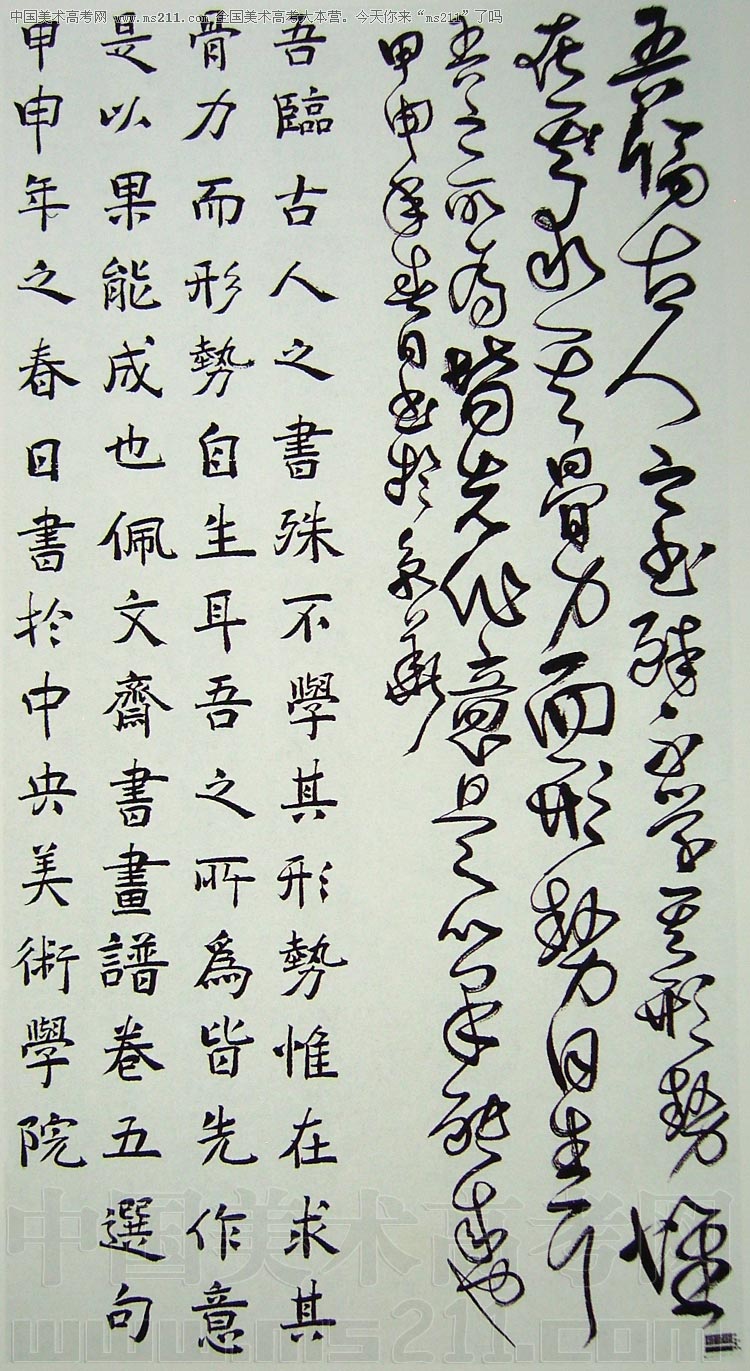 中国美术高考网 www.ms211.com 全国美术高考大本营。今天你来“ms211”了吗
吾臨古人之書殊不學其形勢惟
在求其骨力而形勢自生耳
吾之所為皆先作意是以果能成也
甲申年春日書於京
吾臨古人之書殊不學其形勢惟在求其
骨力而形勢自生耳吾之所爲皆先作意
是以果能成也佩文齋書畫譜卷五選句
甲申年之春日書於中央美術學院
中国美术高考网
www.ms211.com